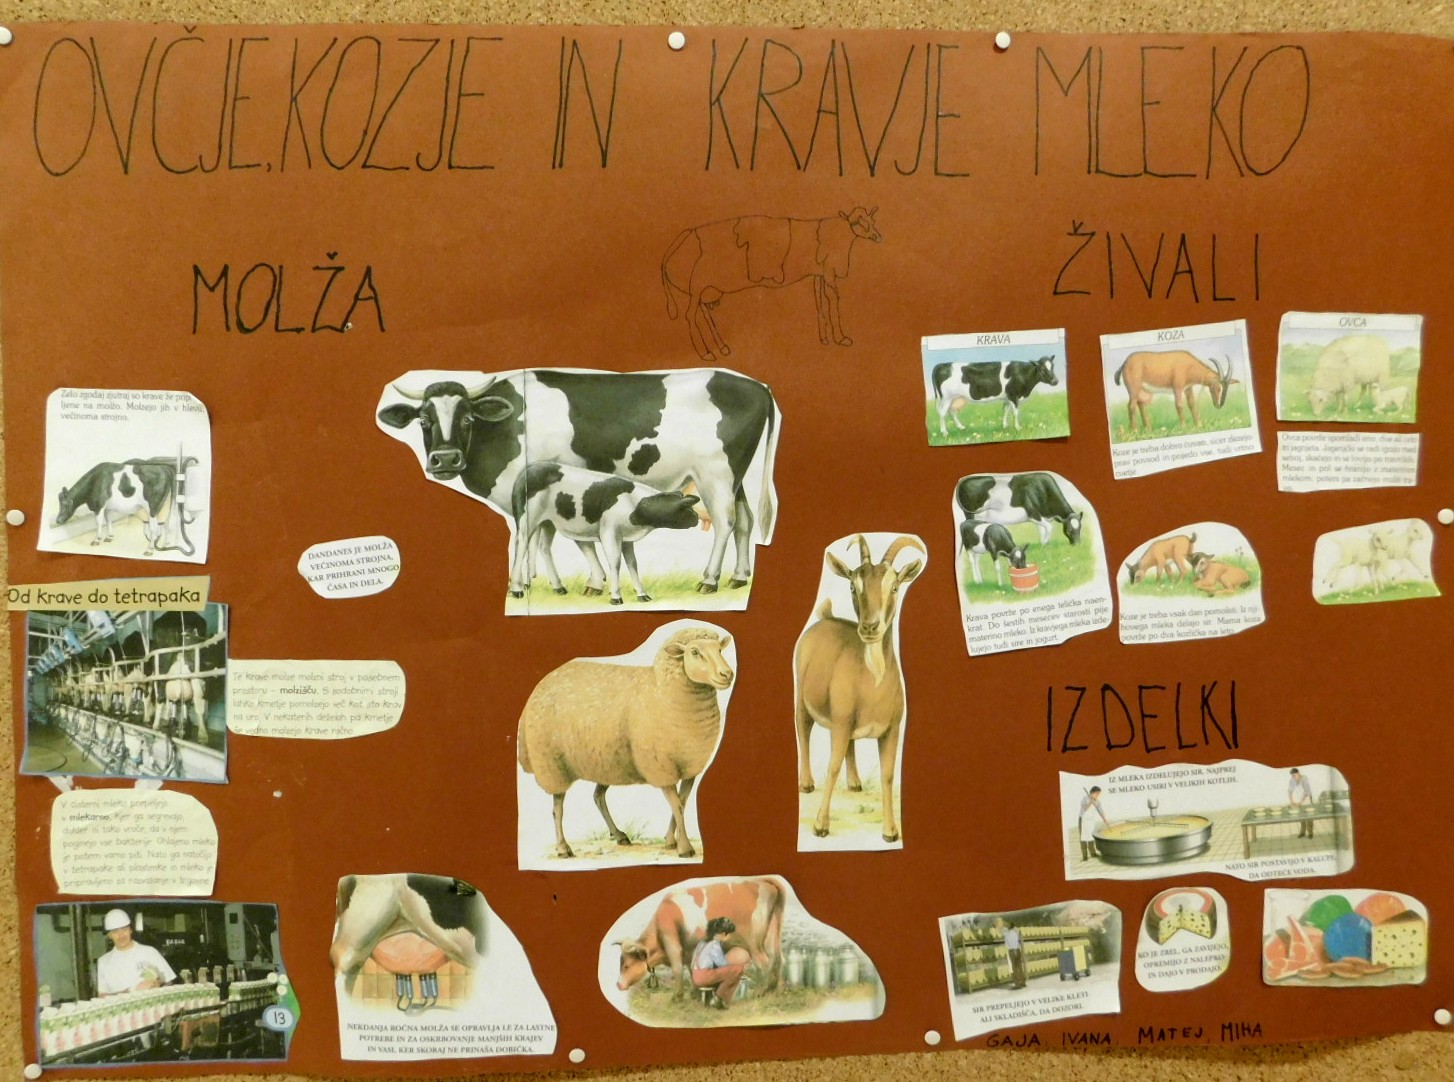 OVČJE, KOZJE IN KRAVJE MLEKO
MOLŽA
Zelo zgodaj zjutraj so krave že prip
ljene na molžo. Molzejo jih v hlevu,
večinoma strojno.
DANDANES JE MOLŽA
VEČINOMA STROJNA,
KAR PRIHRANI MNOGO
ČASA IN DELA.
Od krave do tetrapaka
Te krave molze molzni stroj v posebnem
prostoru – molzišču. S sodobnimi stroji
lahko kmetje pomolzejo več kot sto krav
na uro. V nekaterih deželah pa kmetje
še vedno molzejo krave ročno.
V cisterni mleko prepeljejo
v mlekarno, kjer ga segrevajo,
dokler ni tako vroče, da v njem
poginejo vse bakterije. Ohlajeno mleko
je potem varno piti. Nato ga natočijo
v tetrapake ali plastenke in mleko je
pripravljeno za razvažanje v trgovine.
13
NEKDANJA ROČNA MOLŽA SE OPRAVLJA LE ZA LASTNE
POTREBE IN ZA OSKRBOVANJE MANJŠIH KRAJEV
IN VASI, KER SKORAJ NE PRINAŠA DOBIČKA.
ŽIVALI
KRAVA
KOZA
Koze je treba dobro čuvati, sicer
prav povsod in pojedo vse, tudi vrtno
cvetje.
OVCA
Ovca povrže spomladi eno, dve ali celo
tri jagnjeta. Jagenjčki se radi igrajo med
seboj, skačejo in se lovijo po travnikih.
Mesec in pol se hranijo z materinim
mlekom, potem pa začnejo muliti tra-
vo.
Krava povrže po enega telička naen-
krat. Do šestih mesecev starosti pije
materino mleko. Iz kravjega mleka izde-
lujejo tudi sire in jogurt.
Koze je treba vsak dan pomolsti. Iz nji-
hovega mleka delajo sir. Mama koza
povrže po dva kozlička na leto.
IZDELKI
IZ MLEKA IZDELUJEJO SIR. NAJPREJ
SE MLEKO USIRI V VELIKIH KOTLIH.
NATO SIR POSTAVIJO V KALUPE,
DA ODTEČE VODA.
SIR PREPELJEJO V VELIKE KLETI
ALI SKLADIŠČA, DA DOZORI.
KO JE ZREL, GA ZAVIJEJO,
OPREMIJO Z NALEPKO
IN DAJO V PRODAJO.
GAJA, IVANA, MATEJ, MIHA